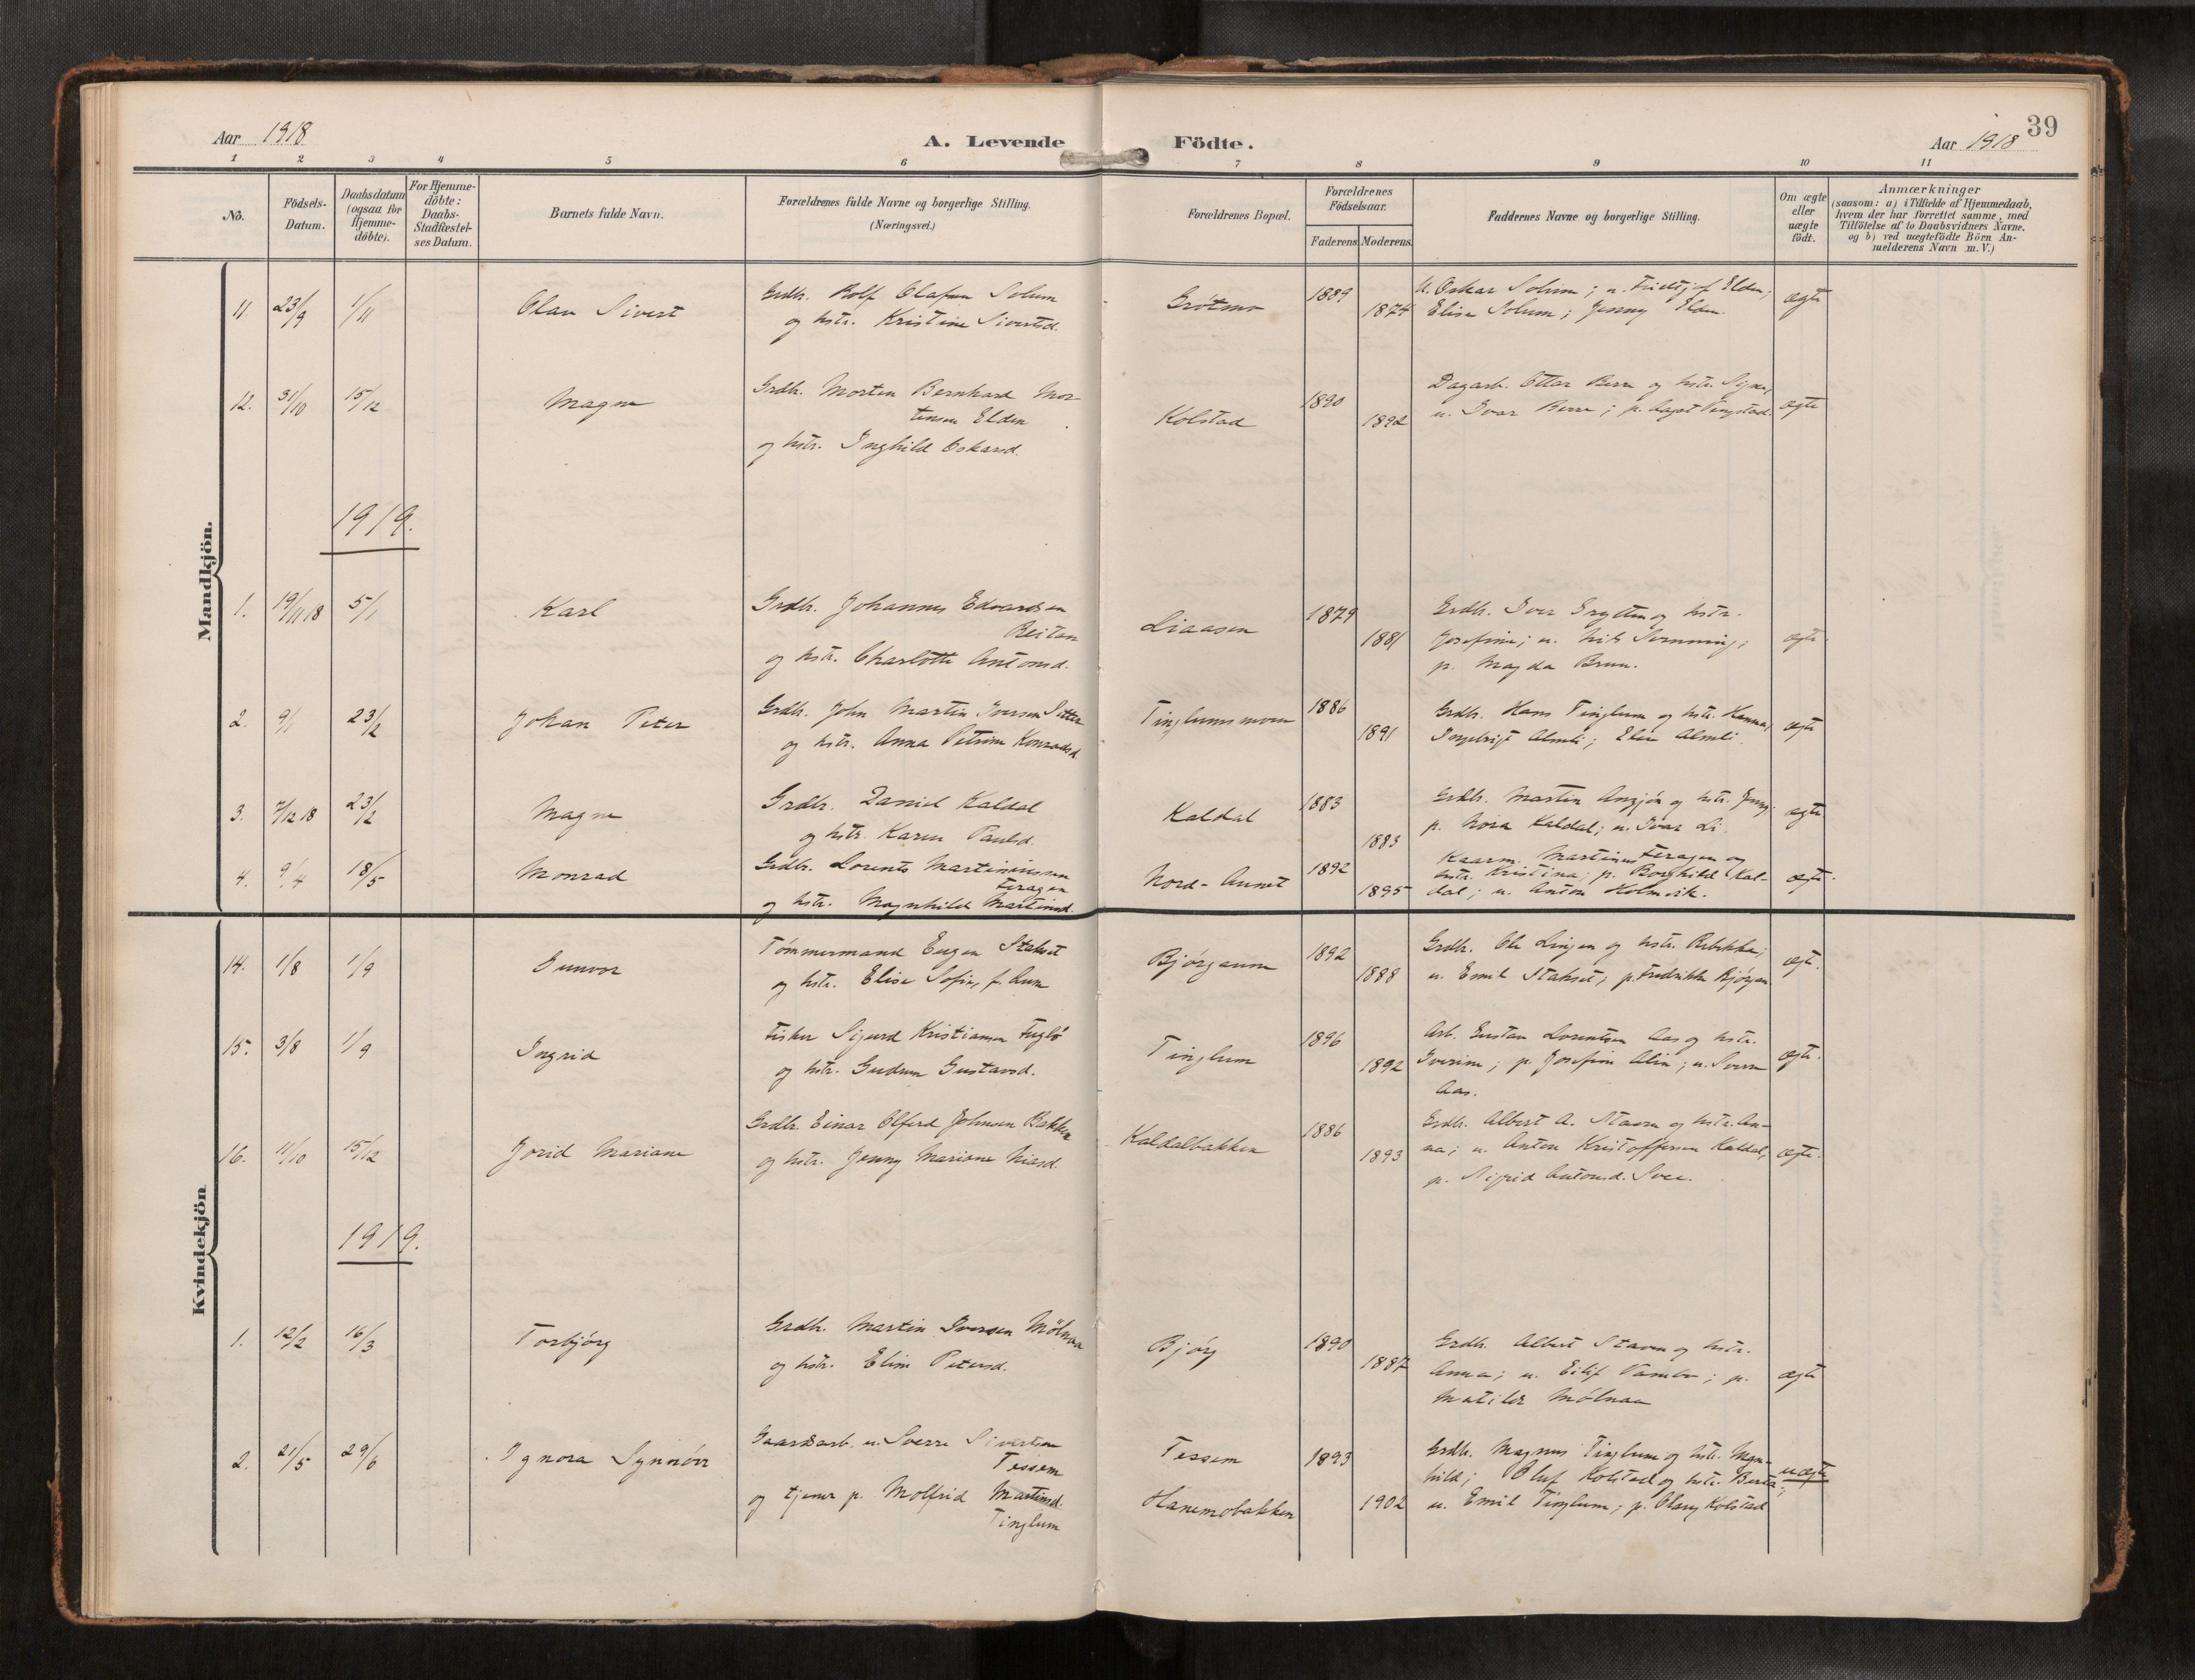 39
Aar 1918
A. Levende Födte.
Aar 1918
1 2 3 4 5 6 7 8 9 10 11
No.
Födsels-Datum.
Daabsdatum (ogsaa for Hjemme-döbte).
For Hjemme-döbte: Daabs-Stadfæstel-ses Datum.
Barnets fulde Navn.
Forældrenes fulde Navne og borgerlige Stilling.
(Næringsvei.)
Forældrenes Bopæl.
Forældrenes Födselsaar.
Faderens. Moderens.
Faddernes Navne og borgerlige Stilling.
Om ægte eller uægte födt.
Anmærkninger
(saasom: a) i Tilfælde af Hjemmedaab,
hvem der har forrettet samme, med
Tilföielse af to Daabsvidners Navne.
og b) ved uægtefödte Börn An-
melderens Navn m. V.)
Mandkjön.
11. 23/9 1/11 Olav Sivert Grdbr. Rolf Olafsen Solum Grötmo 1889 U. Oskar Solum; u. Fridtjof Elden; ægte
og hstr. Kristine Sivertsd. 1874 Elise Solum; Jenny Elden.
12. 31/10 15/12 Magne Grdbr. Morten Bernhard Mor- Kolstad 1890 Dagarb. Ottar Berre og hstr. Signe; ægte
tensen Elden 1892 u. Ivar Berre; p. Aagot
og hstr. Inghild Oskarsd.
1919.
1. 19/11 18 5/1 Karl Grdbr. Johannes Edvardsen Liaasen 1879 Grdbr. Iver Grytten og hstr.
Reitan 1881 Josefine; u. Nils ægte.
og hstr. Charlotte Antonsd. p. Magda Brun.
2. 9/1 23/2 Johan Peter Grdbr. John Martin Iversen Sætter Tinglumsmoen 1886 Grdbr. Hans Tinglum og hstr. Hanna; ægte
og hstr. Anna Petrine Konradsd. 1891 Ingebrigt Almli; Elen Almli.
3. 7/12 18 23/2 Magne Grdbr. Daniel Kaldal Kaldal 1883 Grdbr. Martin og hstr. Jenny; ægte.
og hstr. Karen Paulsd. 1883 p. Nora Kaldal; u. Ivar Li.
4. 9/4 18/5 Monrad Grdbr. Lorents Martiniussen Nord-Aunet 1892 Kaarm. Martinus Feragen og
Feragen hstr. Kristina; p. Borghild Kal- ægte.
og hstr. Magnhild Martinsd. 1895 dal; u. Anton Holmvik.
Kvindekjön
14. 1/8 1/9 Gunvor Tömmermand Eugen Stakset Bjørgaunm 1892 Grdbr. Ole Lingen og hstr. Rebekka; ægt.
og hstr. Elise Sofie, f. Aune 1888 u. Emil Stakset; p. Fredrikke Bjørgan
15. 3/8 1/9 Ingrid Fisker Sigurd Kristiansen Fuglö Tinglum 1896 Arb. Gustav Lorentsen Aas og hstr.
og hstr. Gudrun Gustavsd. 1892 Iverine; p. Josefine Alin; u. Sverre ægte.
Aas.
16. 11/10 15/12 Jorid Mariane Grdbr. Einar Olferd Johnsen Bakken Kaldalbakken 1886 Grdbr. Albert A. Stavrn og hstr. An-
og hstr. Jenny Mariane Niasd. 1893 na; u. Anton Kristoffersen Kaldal; ægte.
p. Sigrid Antonsd. Svee.
1919.
1. 12/2 16/3 Torbjörg Grdbr. Martin Iversen Mölnaa Bjørg 1890 Grdbr. Albert Stavrn og hstr.
og hstr. Eline Petersd. 1887 Anna; u. Eilif p. ægte
Matilde Mölnaa
2. 21/5 29/6 Ignora Synnöve Gaardsarb. u. Sverre Sivertsen Tessem 1893 Grdbr. Magnus Tinglum og hstr. Magn-
Tessem hild; Oluf Kolstad og hstr. Berta; uægte
og tjener p. Molfrid Martinsd. Hanemobakken 1902 u. Emil Tinglum; p. Olaug Kolstad
Tinglum